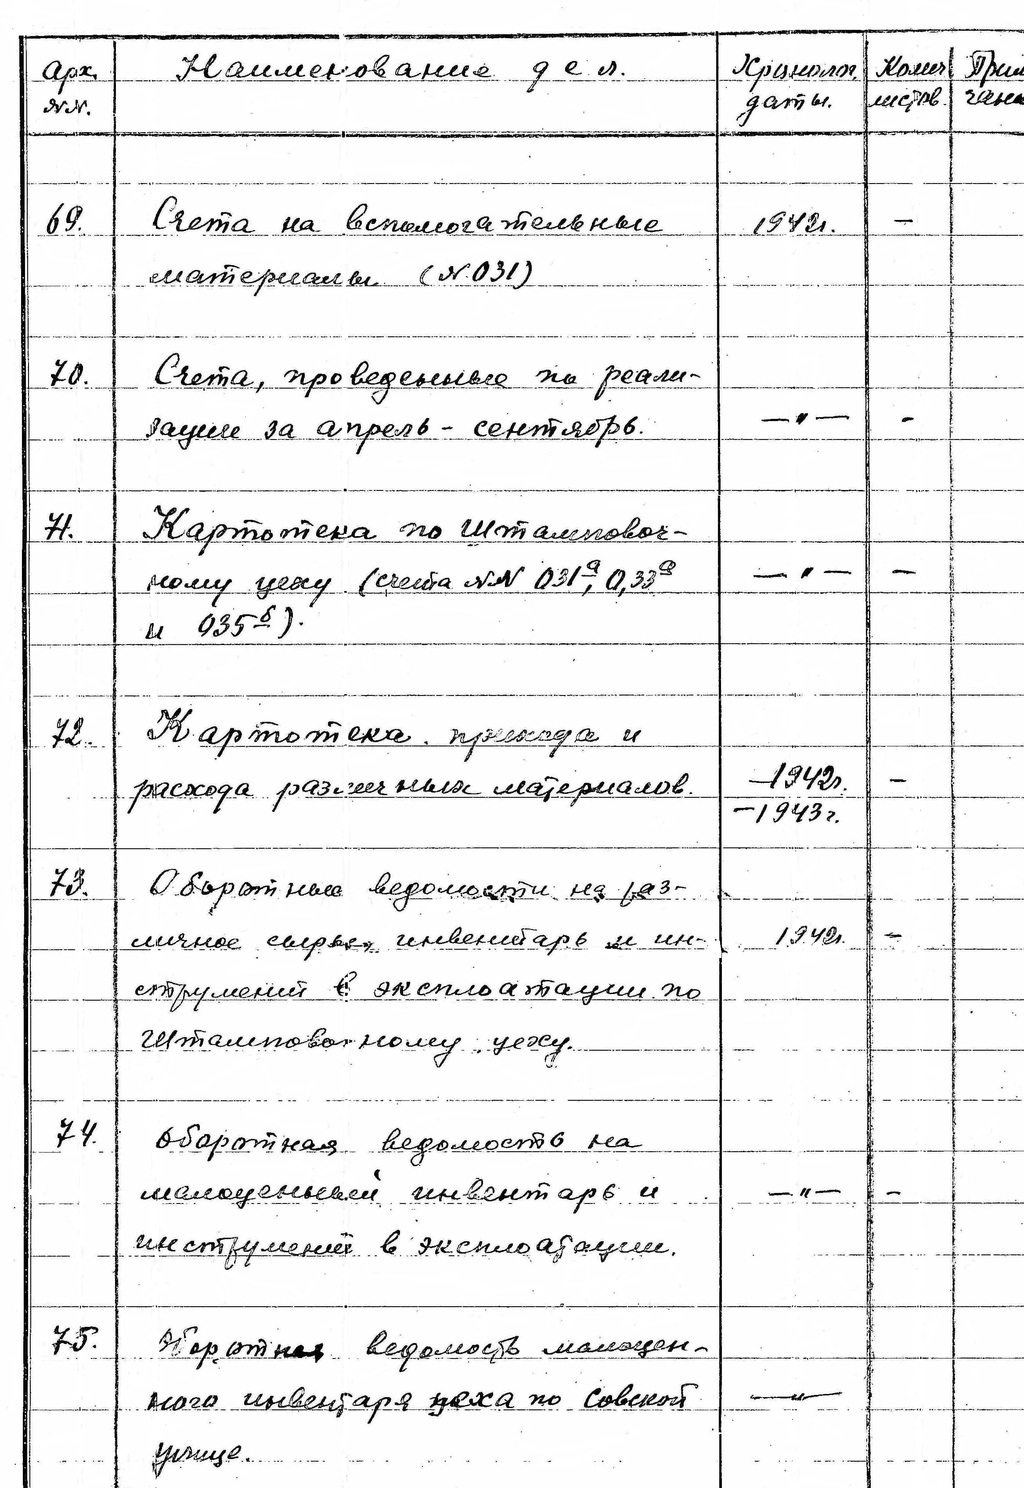 Арх. Наименование дел. Хронолог. Колич. Прим
№№. даты. листов. чани
69. Счета на вспомогательные 1942г. —
материалы (№ 031)
70. Счета, проведенные по реали-
зации за апрель - сентябрь. —"— -
71. Картотека по Штамповоч-
ному цеху (счета №№ 031а, 0,33а —"— —
и 035б).
72. Картотека прихода и
расхода различных материалов. —1942г. —
—1943г.
73. Оборотные ведомости на раз-
личное сырье, инвентарь и ин- 1942г. —
струмент в эксплоатации по
Штамповочному цеху.
74. Оборотная ведомость на
малоценный инвентарь и —"— —
инструмент в эксплоатации.
75. Оборотная ведомость малоцен-
ного инвентаря цеха по Совской —"—
улице.